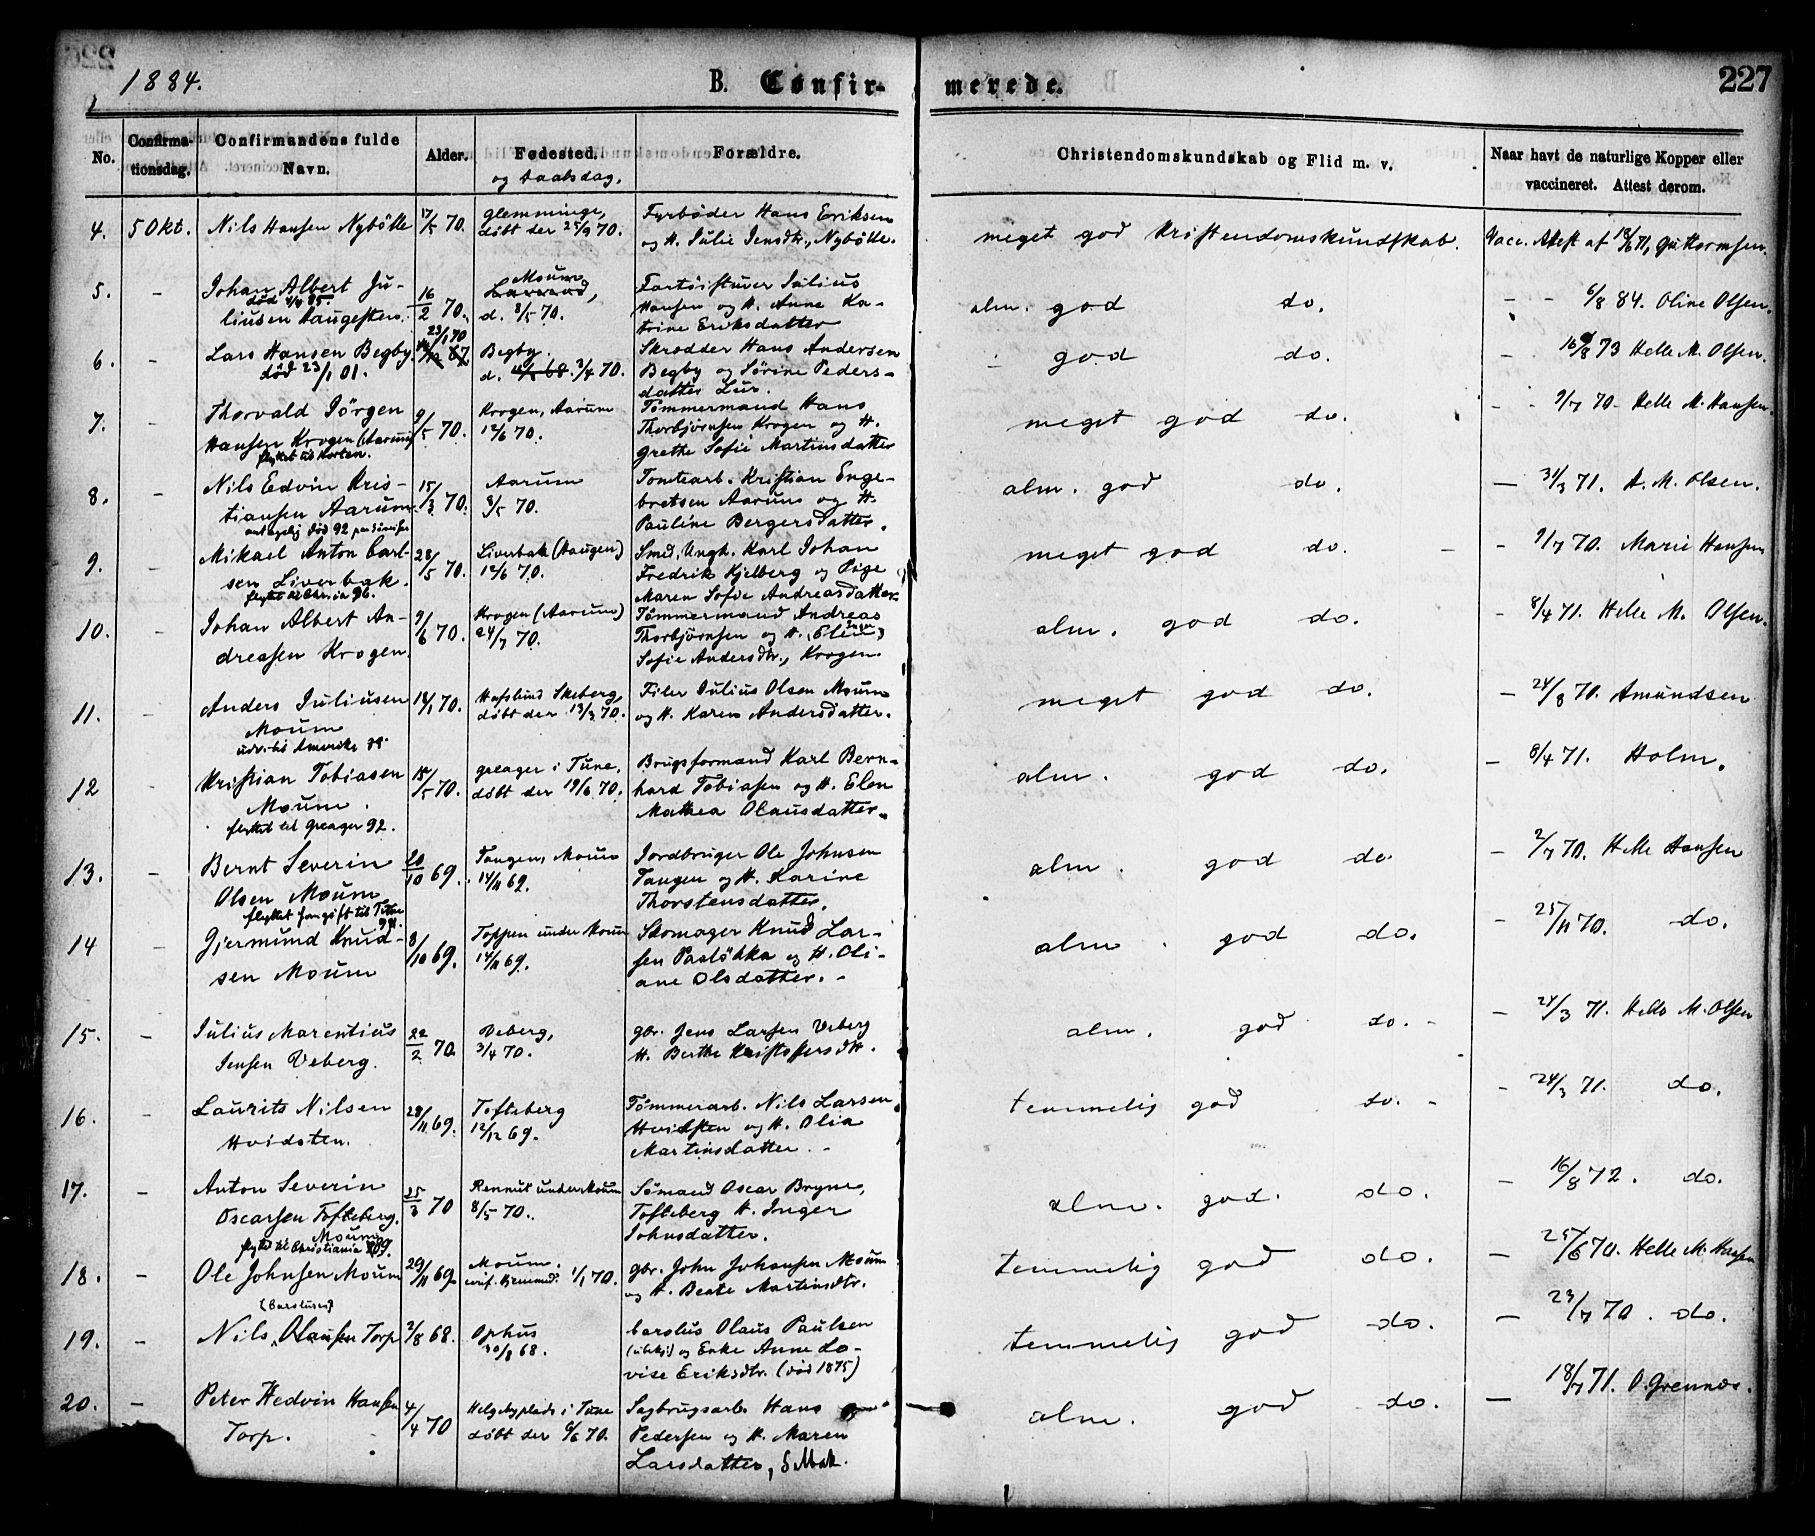 1884.
B. Confir-
merede.
227
No.
Confirma-
tionsdag.
Confirmandens fulde
Navn.
Alder.
Fødested.
og daabsdag.
Forældre.
Christendomskundskab og Flid m. v.
Naar havt de naturlige Kopper eller
vaccineret. Attest derom.
4. 5 Okt. Nils Hansen Nybölle 17/5 70.
Glemminge,
döbt der 25/9 70.
Fyrböder Hans Eriksen
og H. Julie Jensdtr., Nybölle.
meget god Kristendomskundskab.
Vacc. Attest af 18/6 71, Guttormsen.
5. -
Johan Albert Ju-
död 4/4 95
liusen Haugesten.
16/2 70.
Moum
d. 8/5 70.
Julius
Hansen og H. Anne Ka-
trine Eriksdatter
alm. god do.
- - 6/8 84. Oline Olsen.
6. -
Lars Hansen Begby.
död 23/1 01.
23/1 70
Begby.
d. 3/4 70.
Skrædder Hans Andersen
Begby og Sörine Peders-
datter Lur.
god do.
- 16/8 73 Helle M. Olsen.
7. -
Thorvald Jörgen
Hansen Krogen (Aarum)
flyttet til Horten.
9/5 70.
Krogen, Aarum
12/6 70.
Tömmermand Hans
Thorbjörnsen Krogen og H.
Grethe Sofie Martinsdatter
meget god do.
- - 9/7 70 - Helle M. Hansen.
8. -
Nils Edvin Kris-
tiansen Aarum.
antagelig död 92
15/3 70.
Aarum
8/5 70.
Tomtearb. Kristian Enge-
bretsen Aarum og H.
Pauline Bergersdatter.
alm. god do.
- 31/3 71. H. M. Olsen.
9. -
Mikael Anton Carl-
sen Liverbak.
flyttet til Chr.ia 96.
28/5 70.
Liverbak (Haugen)
12/6 70.
Smed, Ungk. Karl Johan
Fredrik Kjelberg og Pige
Maren Sofie Andreasdatter
meget god do. -
- 9/7 70. Marie Hansen
10. -
Johan Albert An-
dreasen Krogen.
9/6 70.
Krogen (Aarum)
24/7 70.
Tömmermand Andreas
Thorbjörnsen og H.
Sofie Andersdtr., Krogen.
alm. god do.
- 8/4 71. Helle M. Olsen.
11. -
Anders Juliusen
Moum
udv. til Amerika
18/1 70.
Hafslund Skeberg,
döbt der 13/3 70.
Filer Julius Olsen Moum
og H. Karen Andersdatter.
meget god do.
- 24/8 70. Amundsen
12
Kristian Tobiasen
Moum.
flyttet til Greager 92.
15/5 70.
Greager i Tune,
döbt der 19/6 70.
Brugsformand Karl Bern-
hard Tobiasen og H. Elen
Mathea Olausdatter.
alm. god do.
- 8/4 71. Holm.
13. -
Bernt Severin
Olsen Moum
20/10 69.
Tangen, Moum
14/11 69.
Jordbruger Ole Johnsen
Tangen og H. Karine
Thorstensdatter.
alm. god do.
- 2/7 70. Helle Hansen
14 -
Gjermund Knud-
sen Moum
8/10 69.
Toppen under Moum
14/11 69.
Skomager Knud Lar-
sen og H. Oli-
ane Olsdatter. -
alm. god do.
- 25/11 70. do.
15. -
Julius Marentius
Jensen Veberg.
22/2 70
Veberg,
3/4 70.
Gbr. Jens Larsen Veberg
H. Berthe Kristoffersdtr.
alm. god do. -
- 24/3 71. Helle M. Olsen
16. -
Laurits Nilsen
Hvidsten.
28/11 69.
Tofteberg
12/12 69.
Tömmerarb. Nils Larsen
Hvidsten og H. Olia
Martinsdatter. -
temmelig god do. -
- 24/3 71. do.
17. -
Anton Severin
Oscarsen Tofteberg.
Moum
flyttet til Christiania
25/3 70
under Moum
8/5 70.
Sömand Oscar Bryne,
Tofteberg H. Inger
Johnsdatter.
alm. god. do.
- 16/8 72. do.
18. -
Ole Johnsen Moum
29/11 69.
Moum.
1/1 70.
Gbr. John Johansen Moum
og H. Beate Martinsdtr.
temmelig god do.
- 25/6 70. Helle M. Hansen
19. -
(Carolusen)
Nils Olausen Torp
2/8 68.
Ophus
30/8 68.
Carolus Olaus Paulsen
og Enke Anne Lo-
vise Eriksdtr. (död 1875)
temmelig god do.
- 23/7 70. do.
20. -
Peter Hedvin Hansen
Torp.
4/4 70
Helgebyplads i Tune
döbt der 6/6 70.
Sagbrugsarb. Hans
Pedersen og H. Maren
Larsdatter,
alm. god do.
- 18/7 71. O. Grennæs.